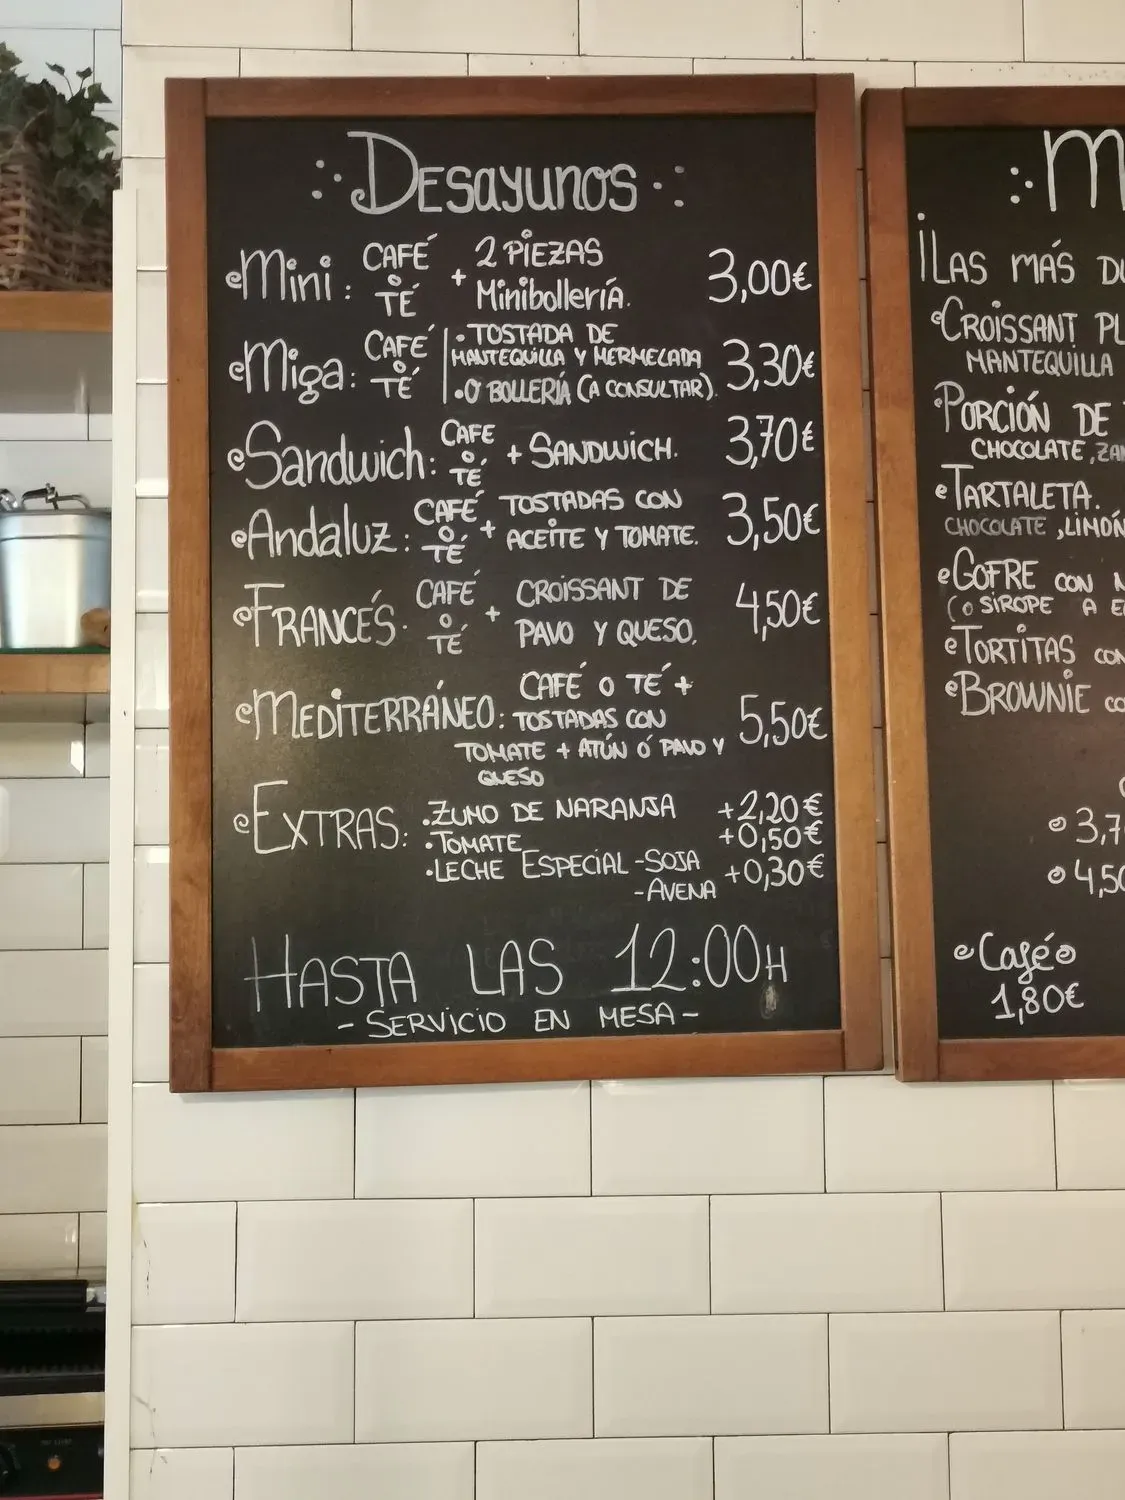 Desayunos
Mini: CAFÉ Ó TÉ + 2 PIEZAS Minibollería. 3,00€
Miga: CAFÉ Ó TÉ
• TOSTADA DE
MANTEQUILLA Y MERMELADA
• O BOLLERÍA (A CONSULTAR). 3,30€
Sandwich: CAFE Ó TÉ + SANDWICH. 3,70€
Andaluz: CAFÉ Ó TÉ + TOSTADAS CON ACEITE Y TOMATE. 3,50€
FRANCÉS. CAFÉ Ó TÉ + CROISSANT DE PAVO Y QUESO. 4,50€
MEDITERRÁNEO: CAFÉ O TÉ +
TOSTADAS CON 5,50€
TOMATE + ATÚN Ó PAVO Y
QUESO
EXTRAS: • ZUMO DE NARANJA +2,20€
• TOMATE +0,50€
• LECHE ESPECIAL - SOJA +0,30€
- AVENA
HASTA LAS 12:00H
- SERVICIO EN MESA -
¡LAS MÁS
CROISSANT
MANTEQUILLA
PORCIÓN DE
CHOCOLATE,
TARTALETA.
CHOCOLATE, LIMÓN
GOFRE CON
(O SIROPE A
TORTITAS
BROWNIE
3,7
4,50
Café
1,80€